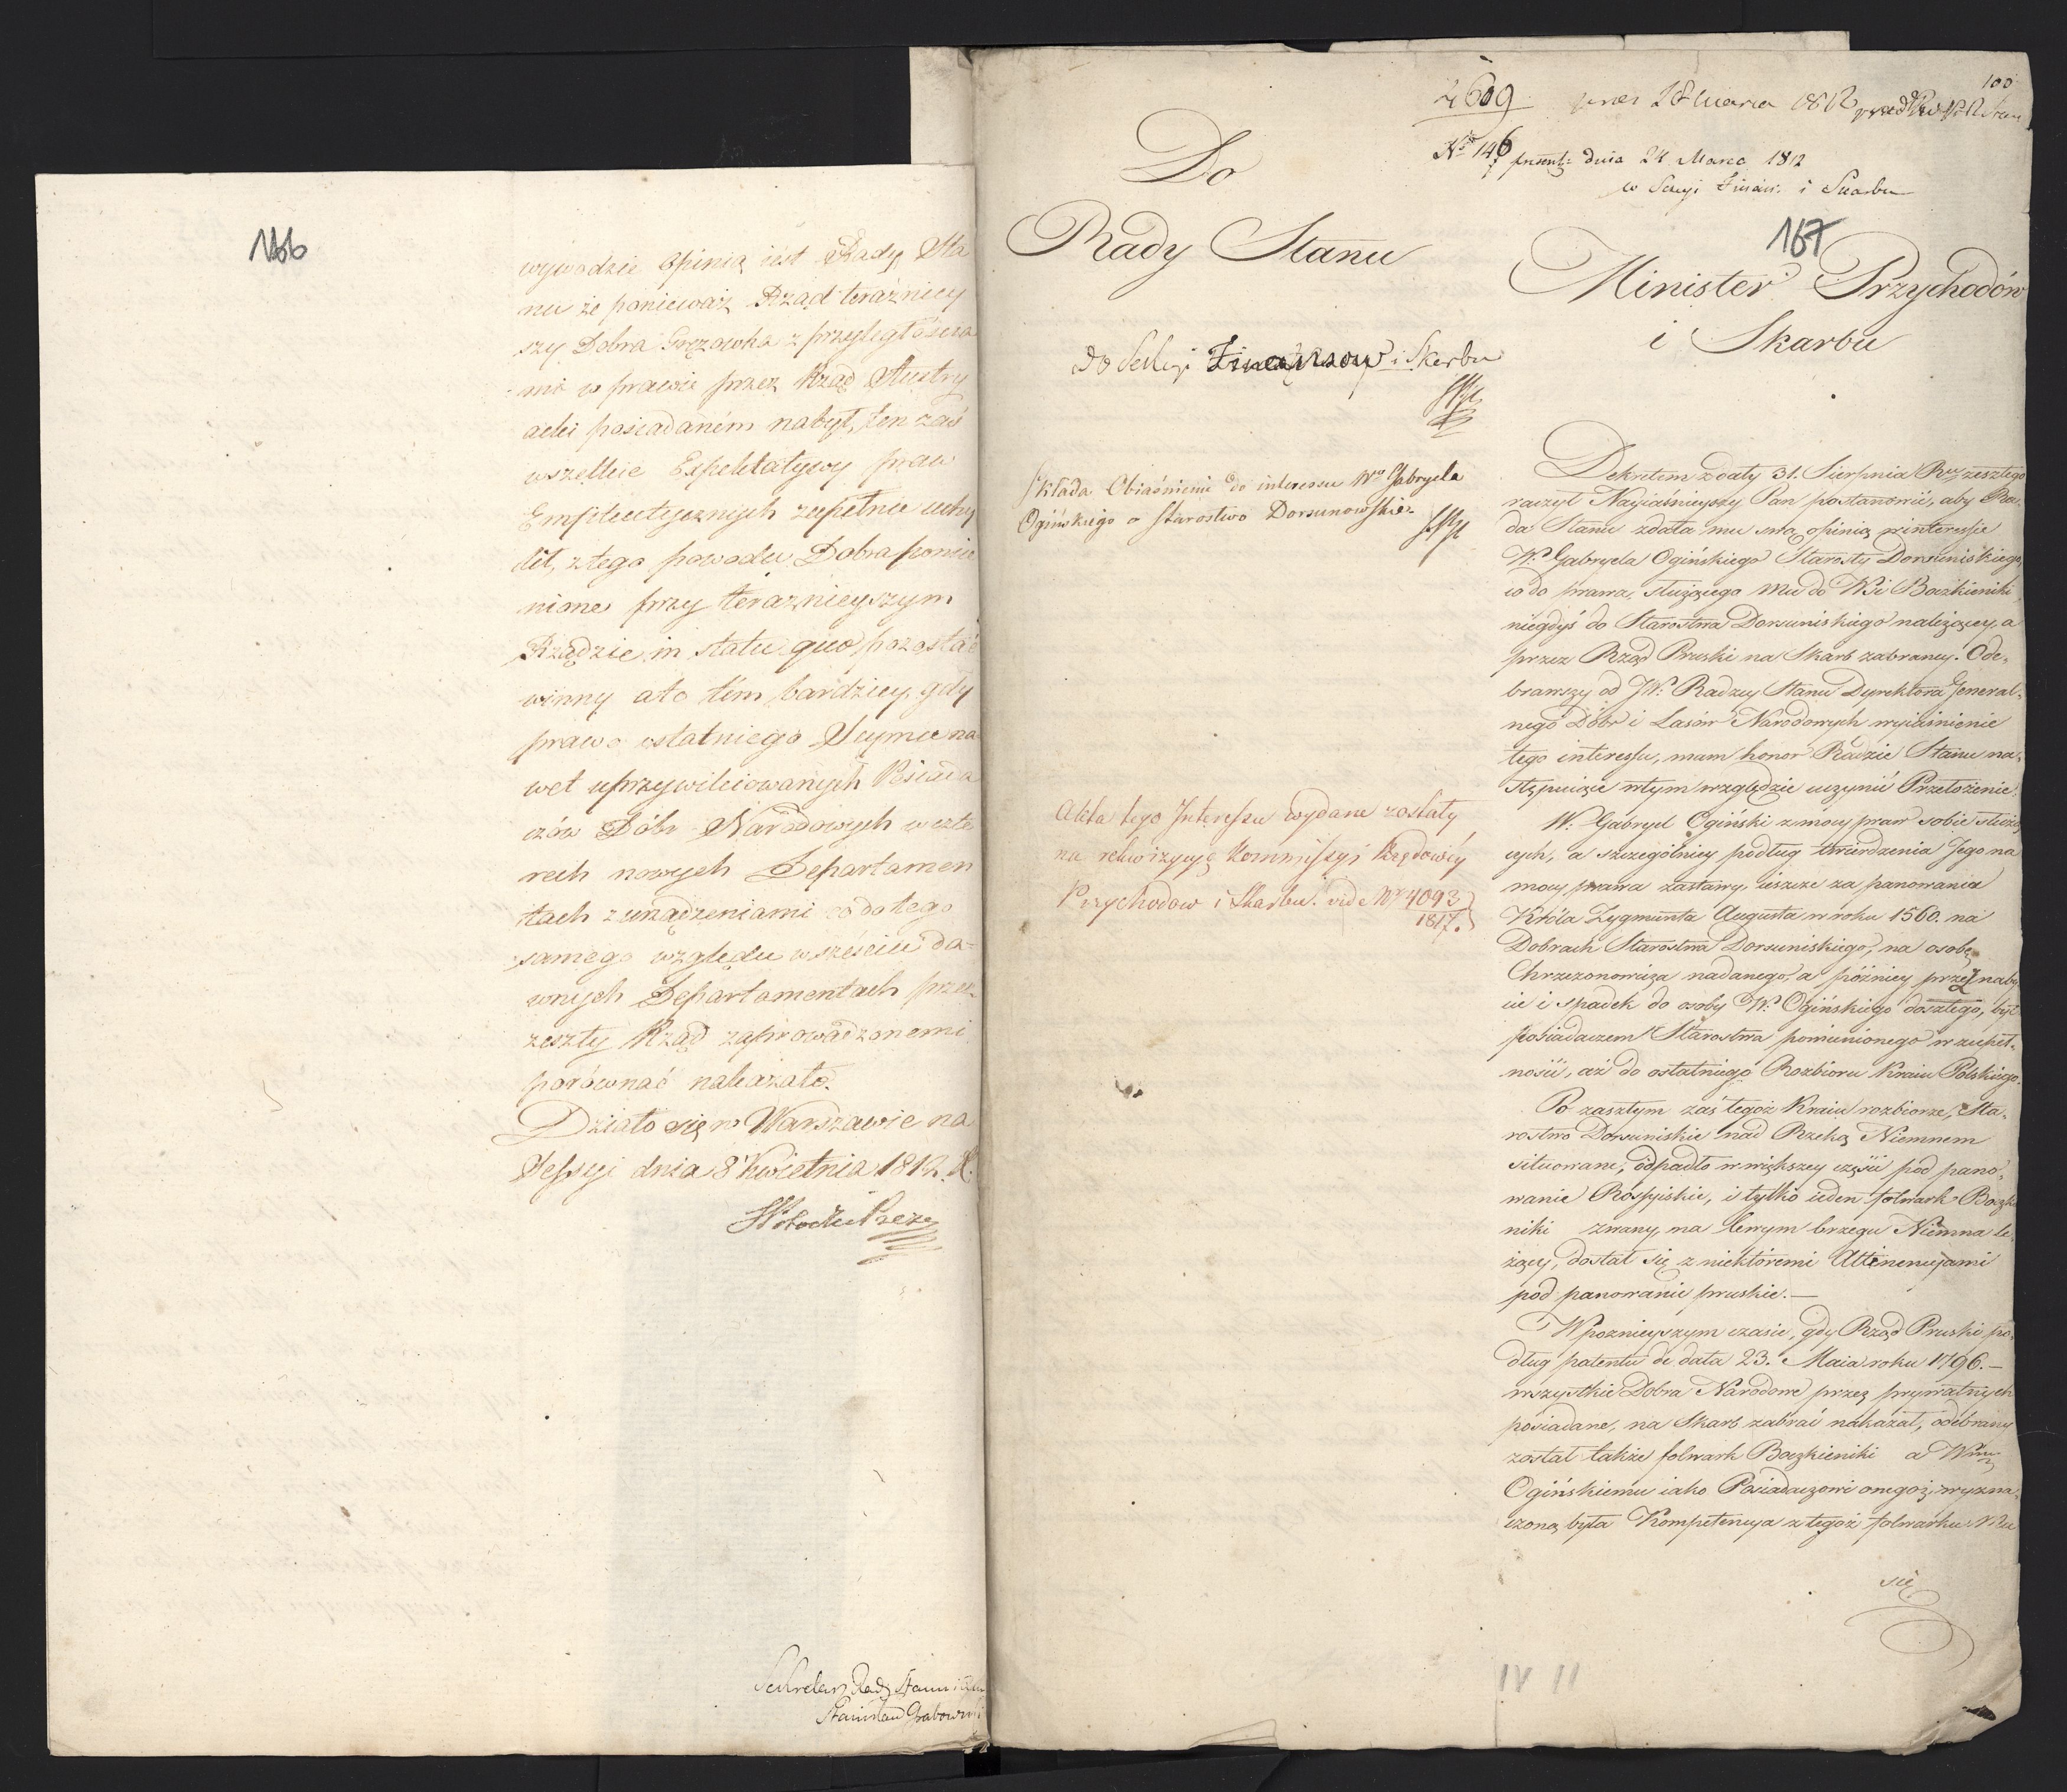 166
wywodzie opinią iest Rady Sta
nu że ponieważ Rząd teraźniey
szy Dobra z przyległościa
mi w prawie przez Rząd Austry
acki posiadaném nabył, ten zaś
wszelkie Expektatywy praw
Emfiteutycznych zupełnie uchy
lił, z tego powodu Dobra pomie
nione przy teraznieyszym
Rządzie in statu quo pozostać
winny ato tém bardziey, gdy
prawo ostatniego Seymu na
wet uprzywileiowanych Posiada
czów Dóbr Narodowych w czte
rech nowych Departamen
tach z urządzeniami co do tego
samego względu w sześciu da=
wnych Departamentach przez
zeszły Rząd zaprowadzonemi
porównać nakazało.
Działo się w Warszawie na
Sessyi dnia 8 Kwietnia 1812. R.
Sekretarz Rady Stanu
Stanisław Grabowski
100
2609 Marca 1812
No 146 prezent: dnia 24 Marca 1812
w Sekcyi Finan: i Skarbu
167
Do
Rady Stanu
Do Sekcyi Finansow i Skarbu
Składa Obiaśnienie do interessu Wo Gabryela
Ogińskiego o Starostwo Dorsunowskie.
Akta tego Interessu wydane zostały
na rekwizycyą Kommissyi Rządowéy
Przychodow i Skarbu. vide No 4093
1817.
Minister Przychodów
i Skarbu
Dekretem z daty 31. Sierpnia Rku zeszłego
raczył Nayiaśnieyszy Pan postanowić, aby Ra„
da Stanu zdała mu swą opinią w interessie
W. Gabryela Ogińskiego Starosty Dorsuniskiego,
co do prawa, służącego mu do Wsi Boczkieniki
niegdyś do Starostwa Dorsuniskiego należącey, a
przez Rząd Pruski na Skarb zabraney. Ode„
brawszy od JW. Radzcy Stanu Dyrektora Jeneral„
nego Dóbr i Lasów Narodowych wyiaśnienie
tego interessu, mam honor Radzie Stanu na„
stępuiące w tym względzie uczynić Przełożenie.
W. Gabryel Ogiński z mocy praw sobie służą
cych, a szczególniey podług twierdzenia Jego na
mocy prawa zastawy, ieszcze za panowania
Króla Zygmunta Augusta w roku 1560. na
Dobrach Starostwa Dorsuniskiego, na osobę
Chrzczonowicza nadanego, a późniey przez naby
cie i spadek do osoby W. Ogińskiego doszłego, był
posiadaczem Starostwa pomienionego w zupeł„
ności, aż do ostatniego Rozbioru Kraiu Polskiego.
Po zaszłym zaś tegoż Kraiu rozbiorze, Sta„
rostwo Dorsuniskie nad Rzeką Niemnem
situowane, odpadło w większey części pod pano„
wanie Rossyiskie, i tylko ieden folwark Boczkie
niki zwany, na lewym brzegu Niemna le
żący, dostał się z niektóremi Attinencyami
pod panowanie pruskie. —
W poznieyszym czasie, gdy Rząd Pruski po„
dług patentu de data 23. Maia roku 1796. —
wszystkie Dobra Narodowe przez prywatnych
posiadane, na Skarb zabrać nakazał, odebrany
został także folwark Boczkieniki a Wmu
Ogińskiemu iako Posiadaczowi onegoż, wyzna„
czona była Kompetencya z tegoż folwarku. Ru
się
IV 11